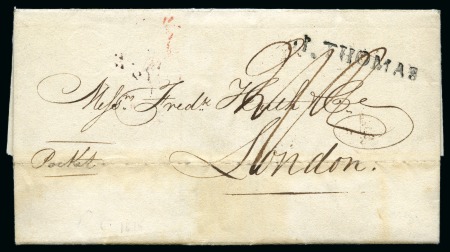 ST. THOMAS
Messrs. Fredk. Huth & Co
London.
Packet